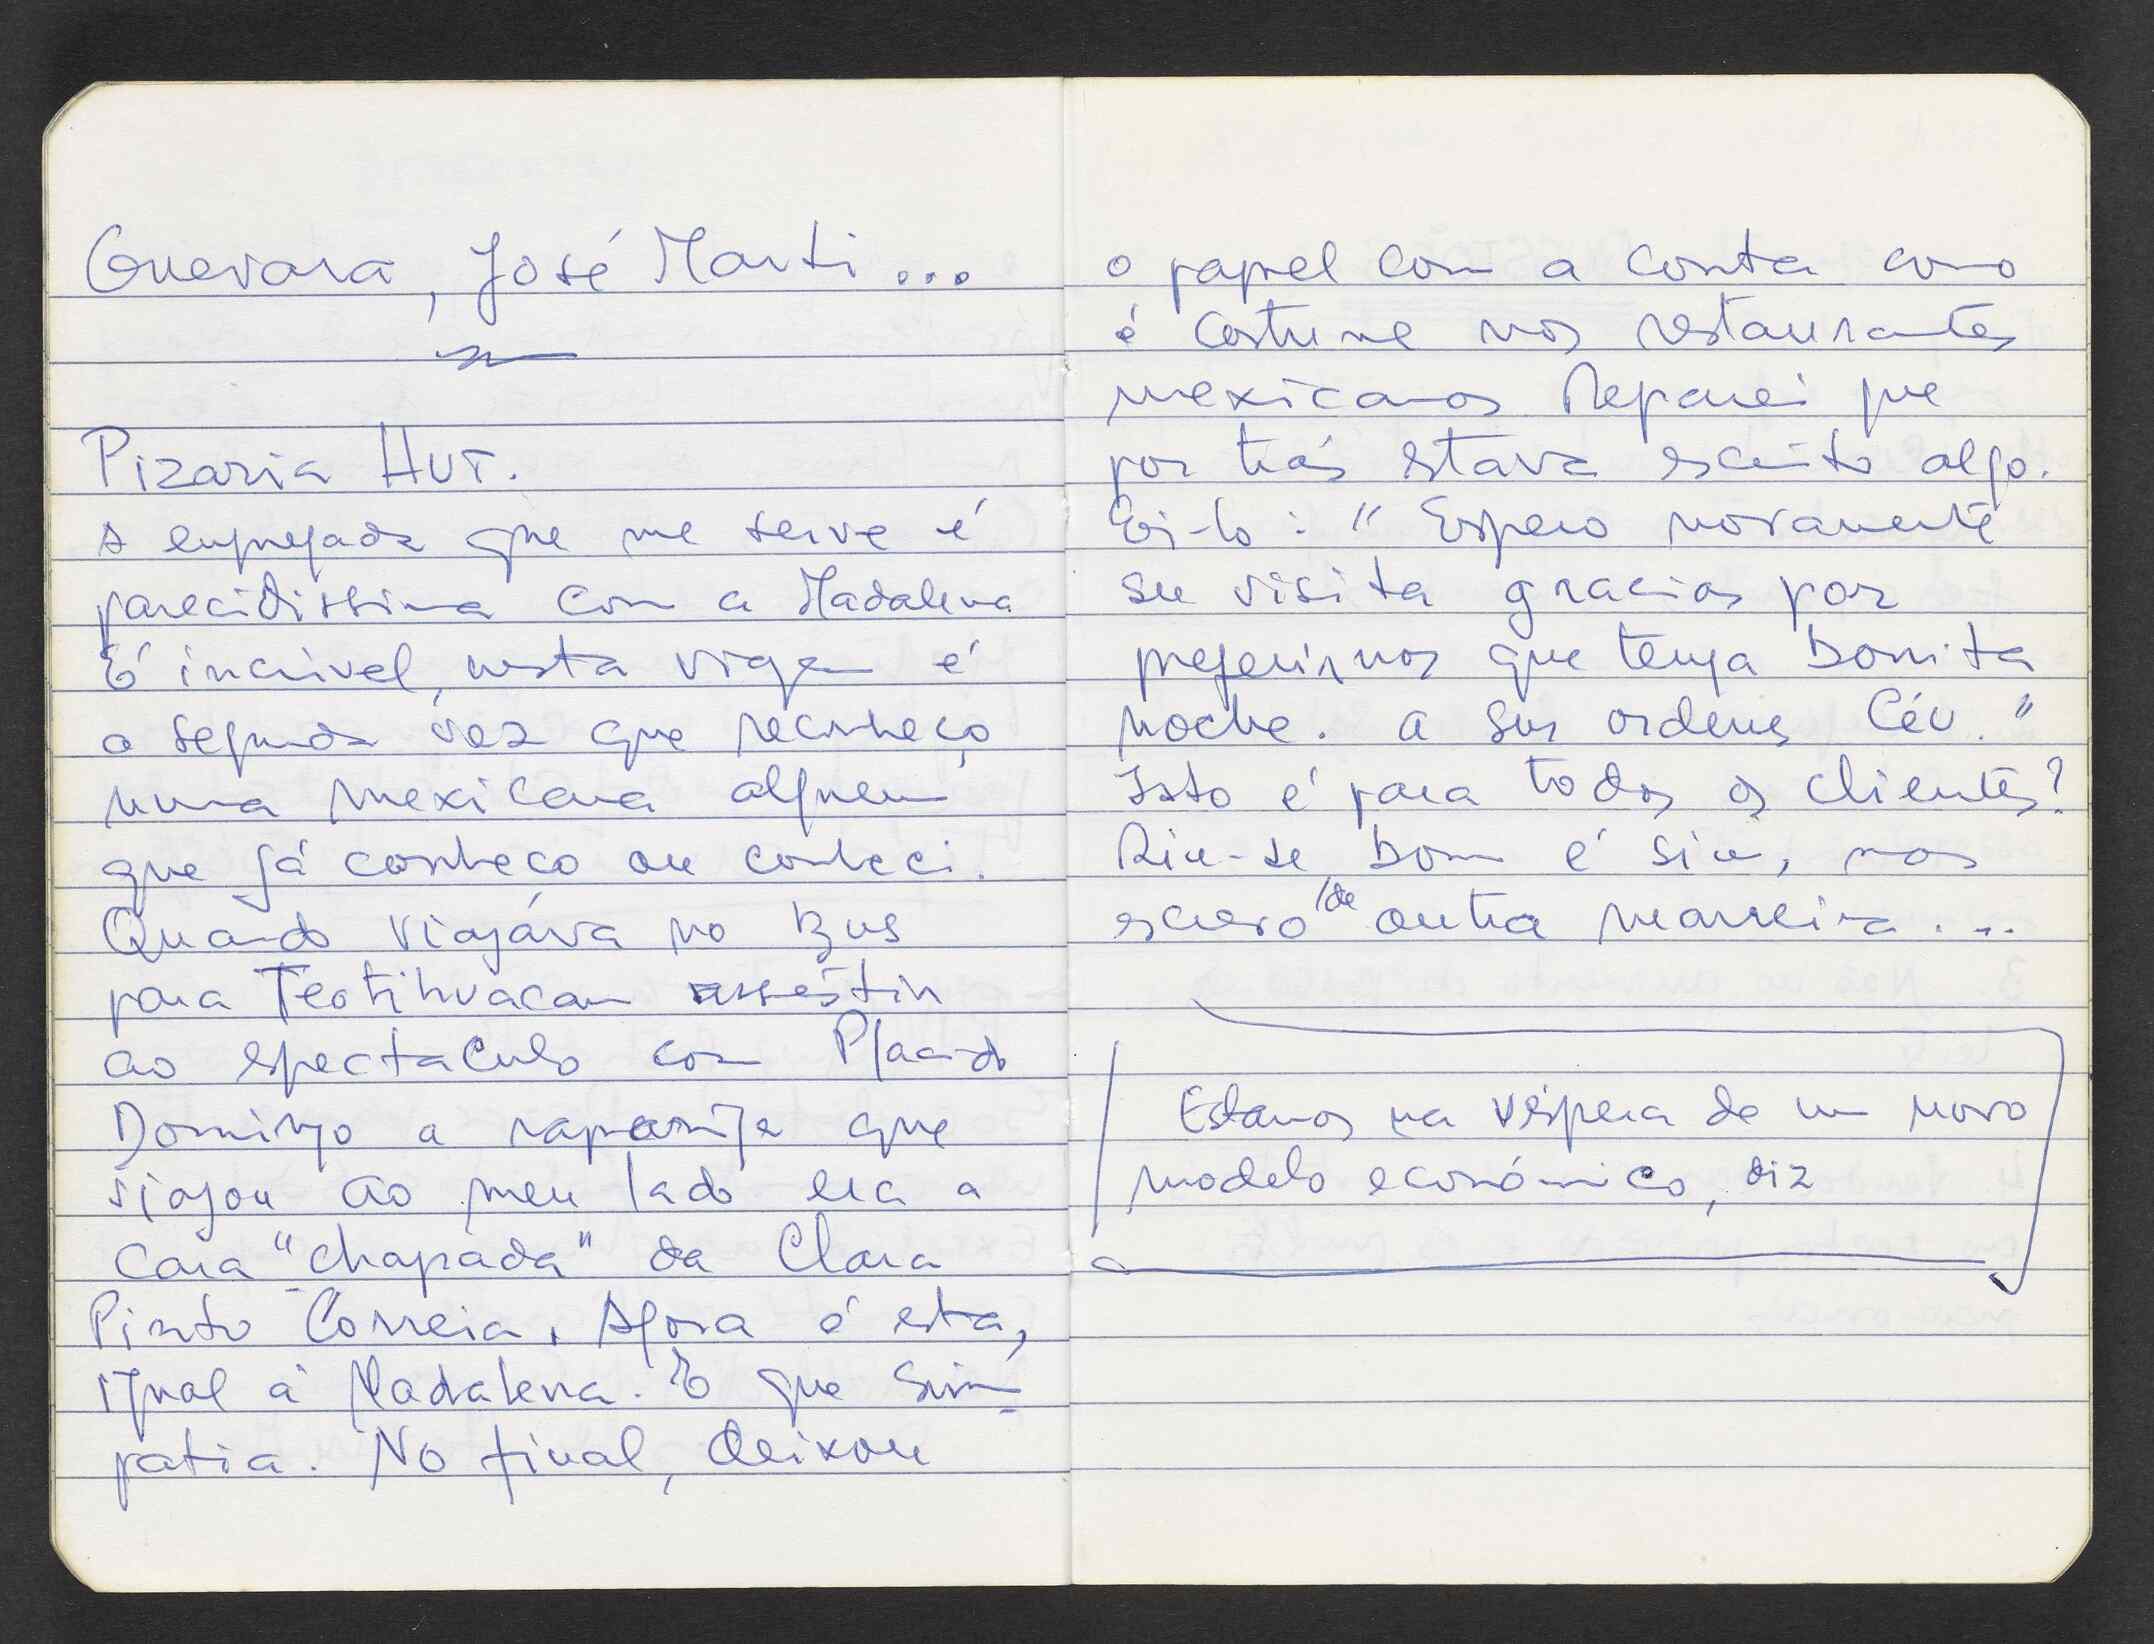 Guevara, José Marti...
Pizaria HUT.
A empregada que me serve é
parecidissima com a Madalena
É incrivel, nesta viagem é
a segunda vez que reconheço
numa mexicana alguem
que já conheco ou conheci.
Quando viajáva no Bus
para Teotihuacan assistir
ao espectaculo com Placido
Domingo a rapariga que
viajou ao meu lado era a
cara "chapada" da Clara
Pinto Correia. Agora é esta,
igual à Madalena. E que sim
patia. No final, deixou
o papel com a conta como
é costume nos restaurantes
mexicanos Reparei que
por trás estava escrito algo.
Ei-lo: "Espero novamente
su visita gracias por
preferirnos que tenga bonita
noche. a sus ordenes Céu."
Isto é para todos os clientes?
Riu-se, bom é sim, mas
escrevo de outra maneira...
Estamos na véspera de um novo
modelo económico, diz